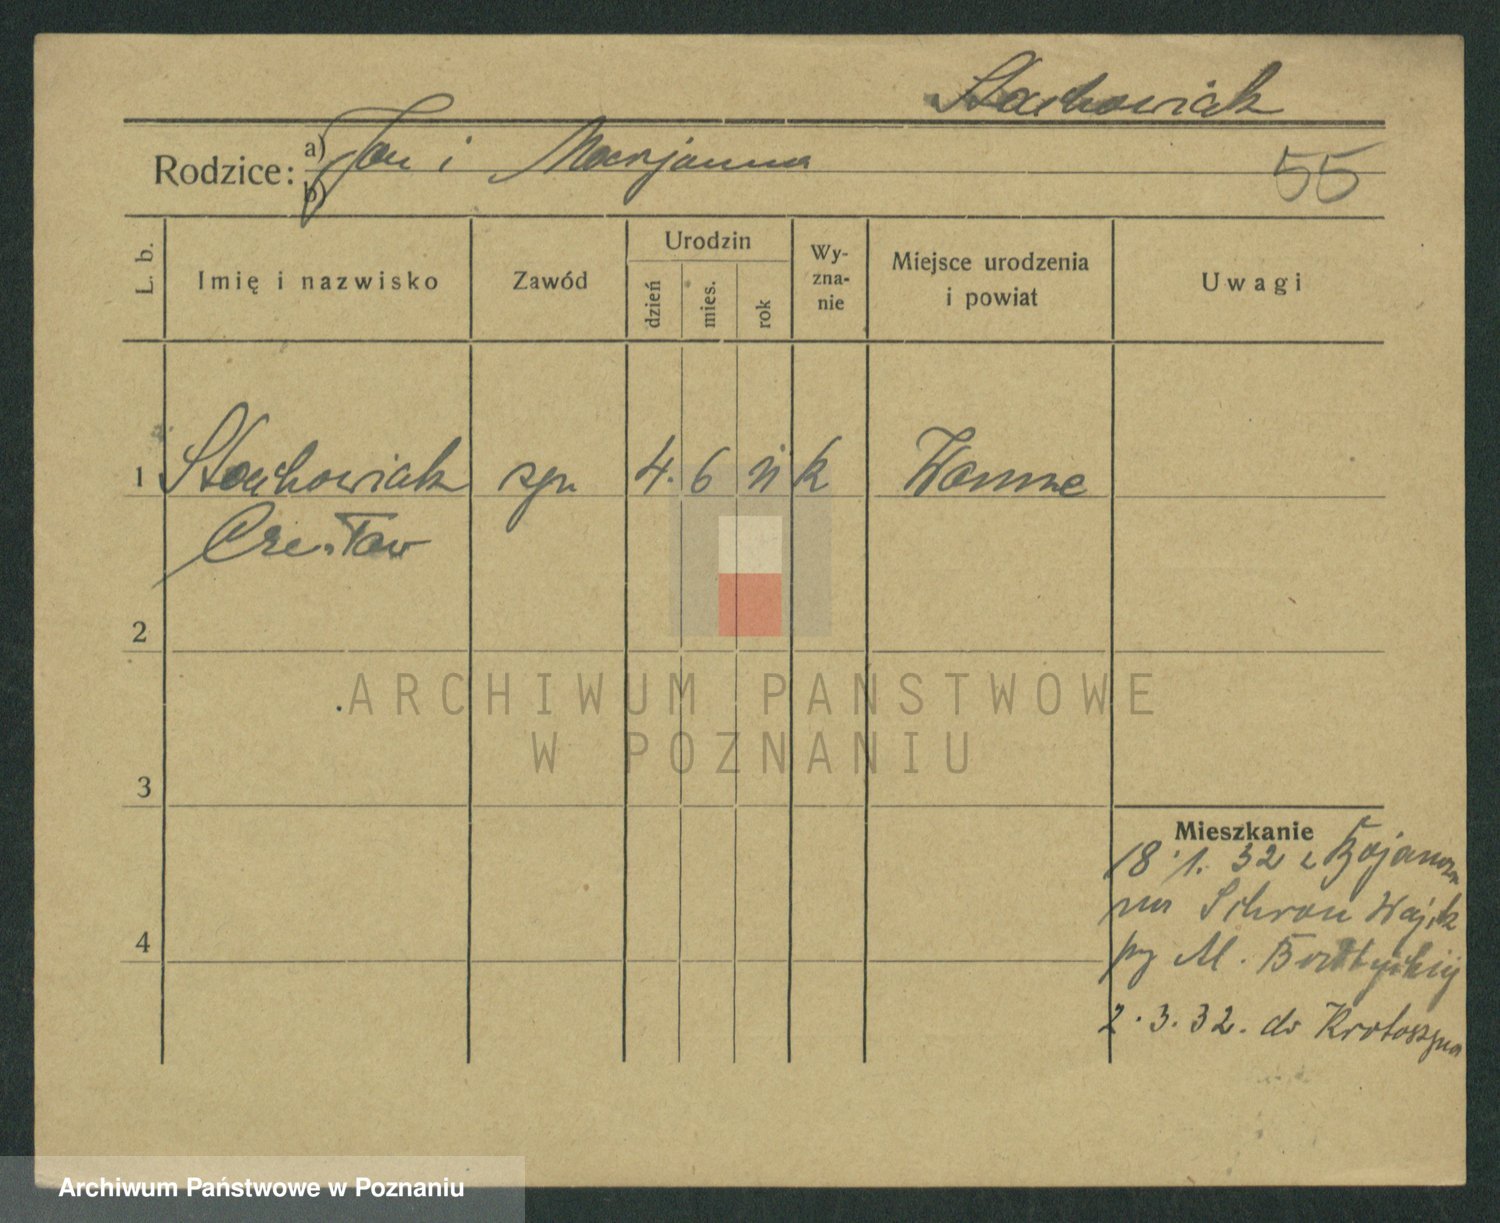 Stachowiak
Rodzice: a) Jan i Marjanna
b)
55
L. b.
Imię i nazwisko
Zawód
Urodzin
dzień
mies.
rok
Wy-
zna-
nie
Miejsce urodzenia
i powiat
Uwagi
1 Stachowiak syn 4. 6 11 k Wanne
Czesław
2
3
4
Mieszkanie
18.1.32 z Bojanowa
na Schron
przy M.
2.3.32. do Krotoszyna
ARCHIWUM PAŃSTWOWE
W POZNANIU
Archiwum Państwowe w Poznaniu